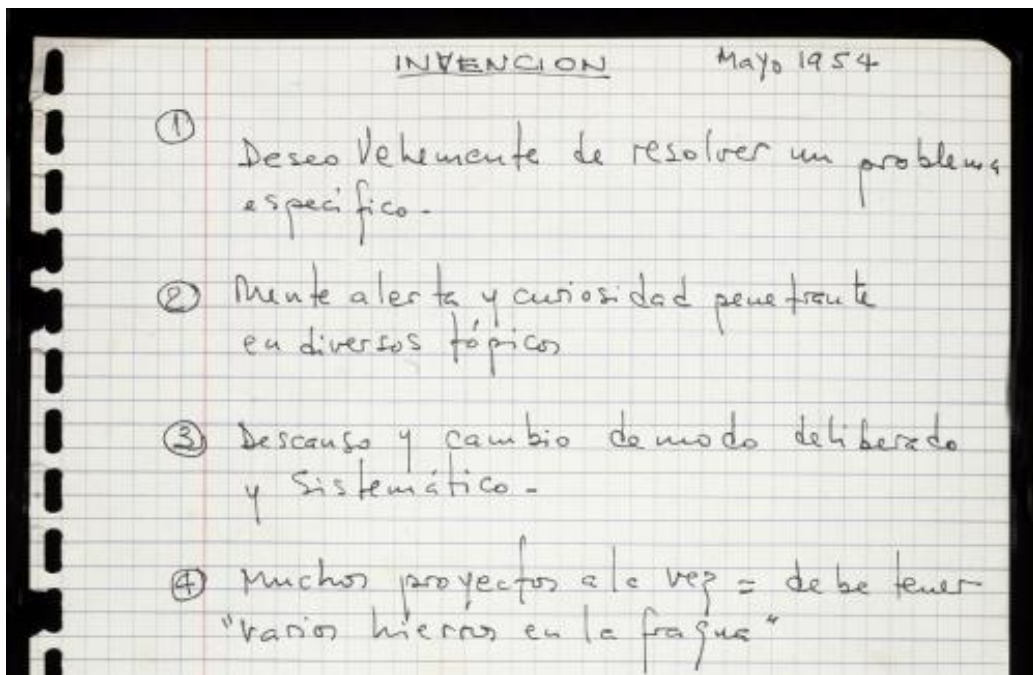 INVENCION Mayo 1954
① Deseo Vehemente de resolver un problema
especifico.-
② Mente alerta y curiosidad penetrante
en diversos tópicos
③ Descanso y cambio de modo deliberado
y Sistemático -
④ Muchos proyectos a la vez = debe tener
"varios hierros en la fragua"